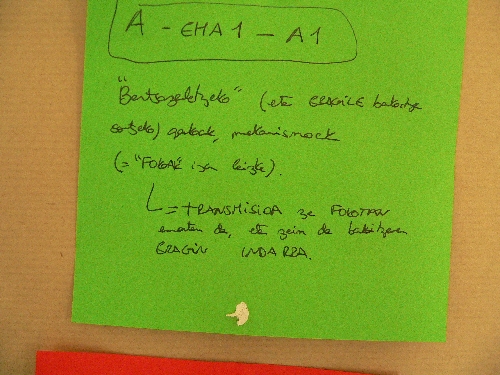 A - EHA1 - A1
"Bertsozaletzeko" (eta ERAGILE bakoitza
sortzeko) gakoak, mekanismoak
(= "FOKOAK" izan leizke).
= TRANSMISIOA ze FOKOTAN
ematen da, eta zein da bakoitzaren
ERAGIN INDARRA.